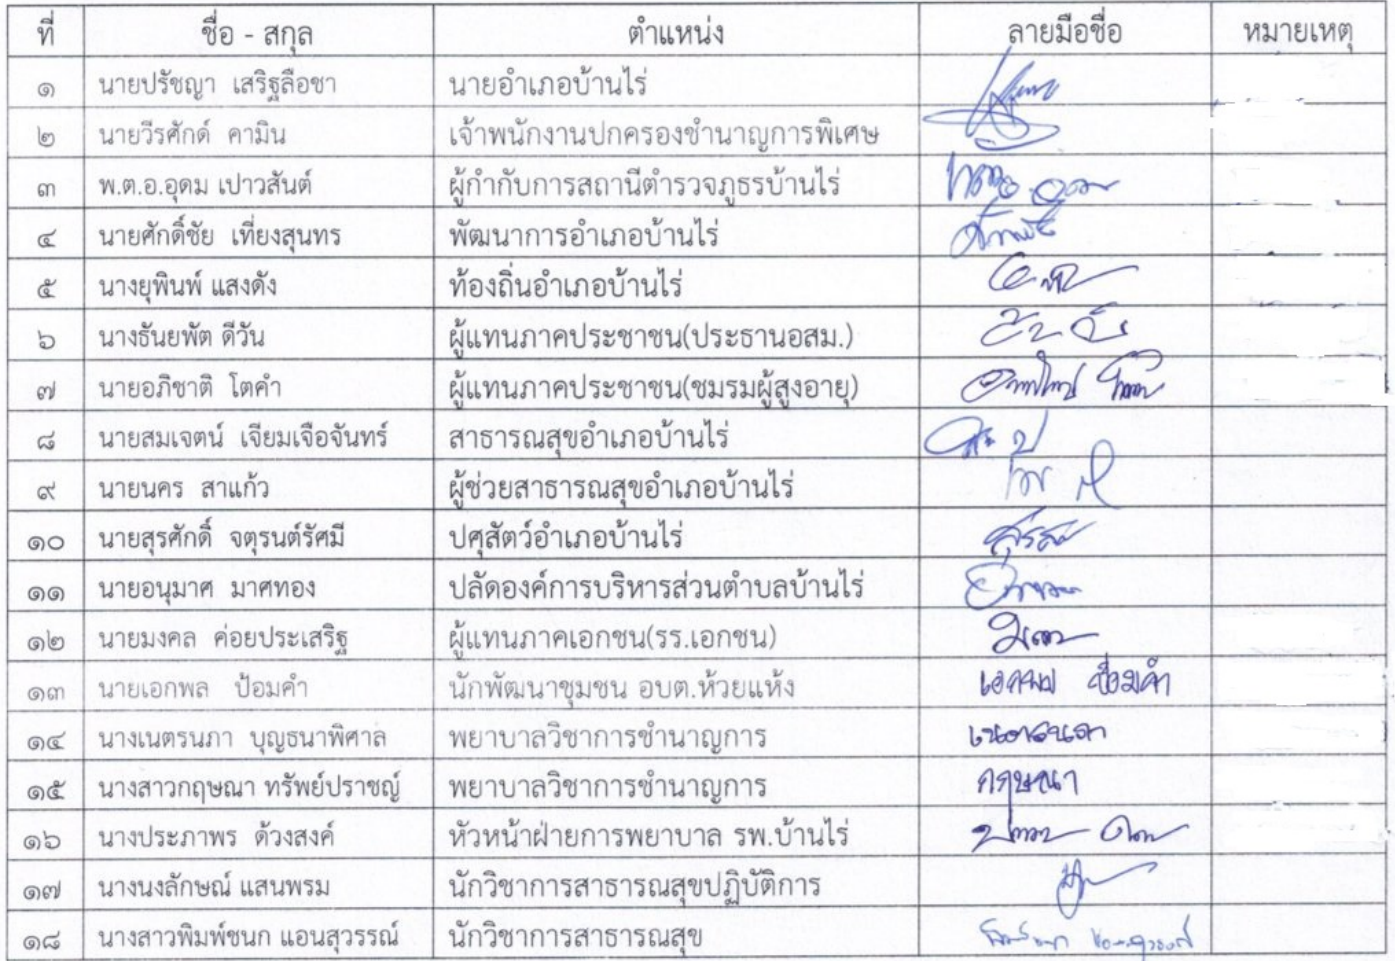 ที่ ชื่อ - สกุล ตำแหน่ง ลายมือชื่อ หมายเหตุ
๑ นายปรัชญา เสริฐลือชา นายอำเภอบ้านไร่
๒ นายวีรศักด์ คามิน เจ้าพนักงานปกครองชำนาญการพิเศษ
๓ พ.ต.อ.อุดม เปาวสันต์ ผู้กำกับการสถานีตำรวจภูธรบ้านไร่
๔ นายศักดิ์ชัย เที่ยงสุนทร พัฒนาการอำเภอบ้านไร่
๕ นางยุพินพ์ แสงดัง ท้องถิ่นอำเภอบ้านไร่
๖ นางธันยพัต ดีวัน ผู้แทนภาคประชาชน(ประธานอสม.)
๗ นายอภิชาติ โตคำ ผู้แทนภาคประชาชน(ชมรมผู้สูงอายุ)
๘ นายสมเจตน์ เจียมเจือจันทร์ สาธารณสุขอำเภอบ้านไร่
๙ นายนคร สาแก้ว ผู้ช่วยสาธารณสุขอำเภอบ้านไร่
๑๐ นายสุรศักดิ์ จตุรนต์รัศมี ปศุสัตว์อำเภอบ้านไร่
๑๑ นายอนุมาศ มาศทอง ปลัดองค์การบริหารส่วนตำบลบ้านไร่
๑๒ นายมงคล ค่อยประเสริฐ ผู้แทนภาคเอกชน(รร.เอกชน)
๑๓ นายเอกพล ป้อมคำ นักพัฒนาชุมชน อบต.ห้วยแห้ง เอกพล ป้อมคำ
๑๔ นางเนตรนภา บุญธนาพิศาล พยาบาลวิชาการชำนาญการ
๑๕ นางสาวกฤษณา ทรัพย์ปราชญ์ พยาบาลวิชาการชำนาญการ กฤษณา
๑๖ นางประภาพร ด้วงสงค์ หัวหน้าฝ่ายการพยาบาล รพ.บ้านไร่
๑๗ นางนงลักษณ์ แสนพรม นักวิชาการสาธารณสุขปฏิบัติการ
๑๘ นางสาวพิมพ์ชนก แอนสุวรรณ์ นักวิชาการสาธารณสุข